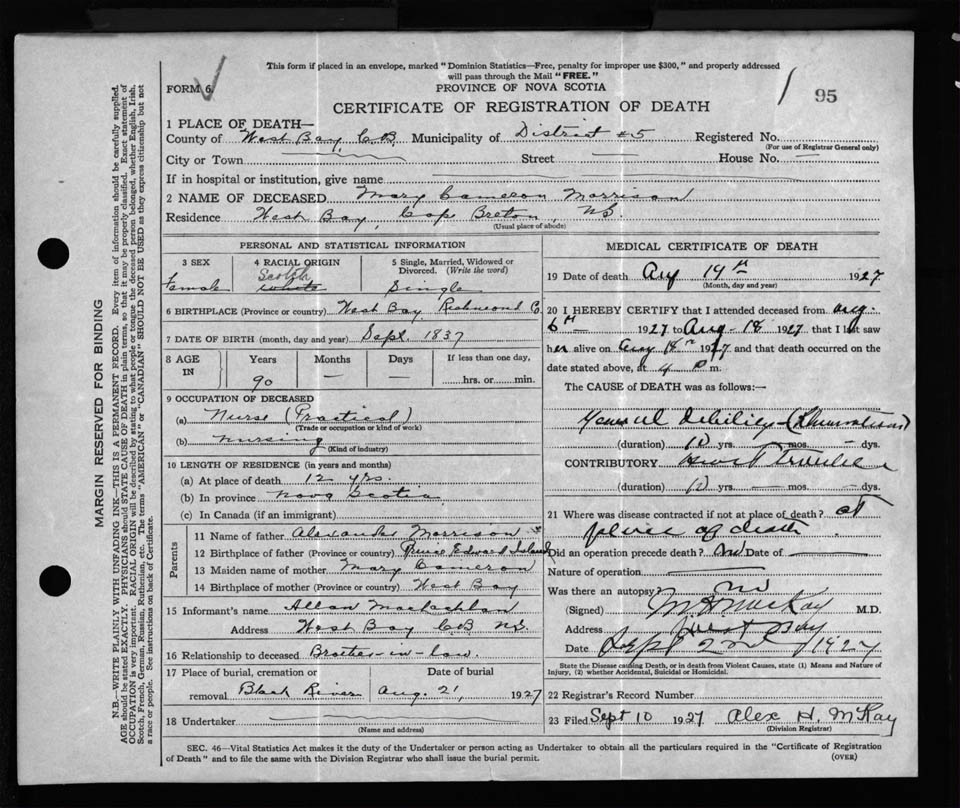 This form if placed in an envelope, marked "Dominion Statistics—Free, penalty for improper use $300," and properly addressed
will pass through the Mail "FREE."
FORM 6.
PROVINCE OF NOVA SCOTIA
95
CERTIFICATE OF REGISTRATION OF DEATH
1 PLACE OF DEATH—
County of West Bay, C.B. Municipality of District #5 Registered No.
(For use of Registrar General only)
City or Town Street — House No. —
If in hospital or institution, give name
2 NAME OF DECEASED Mary Cameron Morrison
Residence West Bay, Cap Breton NS.
(Usual place of abode)
PERSONAL AND STATISTICAL INFORMATION
3 SEX
female
4 RACIAL ORIGIN
Scotch
White
5 Single, Married, Widowed or
Divorced. (Write the word)
Single
6 BIRTHPLACE (Province or country) West Bay Richmond C.
7 DATE OF BIRTH (month, day and year) Sept. 1837
8 AGE
IN
Years
90
Months
—
Days
—
If less than one day,
hrs. or min.
9 OCCUPATION OF DECEASED
(a) Nurse (Practical)
(Trade or occupation or kind of work)
(b) nursing
(Kind of industry)
10 LENGTH OF RESIDENCE (in years and months)
(a) At place of death 12 yrs.
(b) In province Nova Scotia
(c) In Canada (if an immigrant)
Parents
11 Name of father Alexander Morrison
12 Birthplace of father (Province or country) Prince Edward Island
13 Maiden name of mother Mary Cameron
14 Birthplace of mother (Province or country) West Bay
15 Informant's name Allan Maclachlan
Address West Bay C.B. N.S.
16 Relationship to deceased Brother-in-law.
17 Place of burial, cremation or Date of burial
removal Black River Aug. 21, 1927
18 Undertaker
(Name and address)
MEDICAL CERTIFICATE OF DEATH
19 Date of death Aug 19th 1927
(Month, day and year)
20 I HEREBY CERTIFY that I attended deceased from Aug.
6th 1927 to Aug-18 1927 that I last saw
her alive on Aug 18th 1927 and that death occurred on the
date stated above, at 4 P m.
The CAUSE of DEATH was as follows:—
General debility
(duration) 10 yrs. — mos. — dys.
CONTRIBUTORY Heart trouble
(duration) 10 yrs. — mos. — dys.
21 Where was disease contracted if not at place of death? at
place of death
Did an operation precede death? no Date of
Nature of operation
Was there an autopsy? no
(Signed) MacKay M.D.
Address West Bay
Date Sept 2nd 1927
State the Disease causing Death, or in death from Violent Causes, state (1) Means and Nature of
Injury, (2) whether Accidental, Suicidal or Homicidal.
22 Registrar's Record Number
23 Filed Sept 10 1927 Alex H. McKay
(Division Registrar)
SEC. 46—Vital Statistics Act makes it the duty of the Undertaker or person acting as Undertaker to obtain all the particulars required in the "Certificate of Registration
of Death" and to file the same with the Division Registrar who shall issue the burial permit.
(OVER)
MARGIN RESERVED FOR BINDING
N.B.—WRITE PLAINLY WITH UNFADING INK—THIS IS A PERMANENT RECORD. Every item of information should be carefully supplied.
AGE should be stated EXACTLY. PHYSICIANS should STATE CAUSE OF DEATH in plain terms, so that it may be properly classified. Exact statement of
OCCUPATION is very important. RACIAL ORIGIN will be described by stating to what people or tongue the deceased person belonged, whether English, Irish,
Scotch, French, German, Russian, Ruthenian, etc. The terms "AMERICAN" or "CANADIAN" SHOULD NOT BE USED as they express citizenship but not
a race or people. See instructions on back of Certificate.